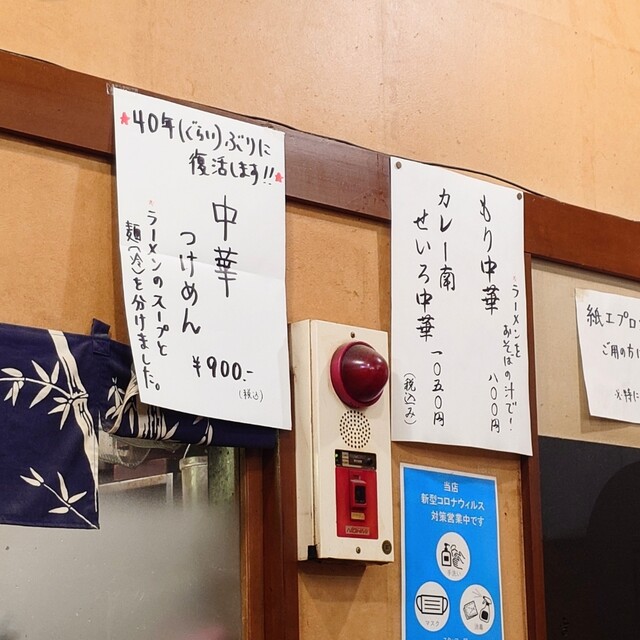 ★40年(ぐらい)ぶりに
復活します!!★
中華
つけめん
¥900.-
(税込)
*ラーメンのスープと
麺(冷)を分けました。
もり中華
*ラーメンを
おそばの汁で!
八〇〇円
カレー南
せいろ中華
一〇五〇円
(税込み)
紙エプロ
ご用の方
※特に
当店
新型コロナウィルス
対策営業中です
手洗い
マスク
消毒